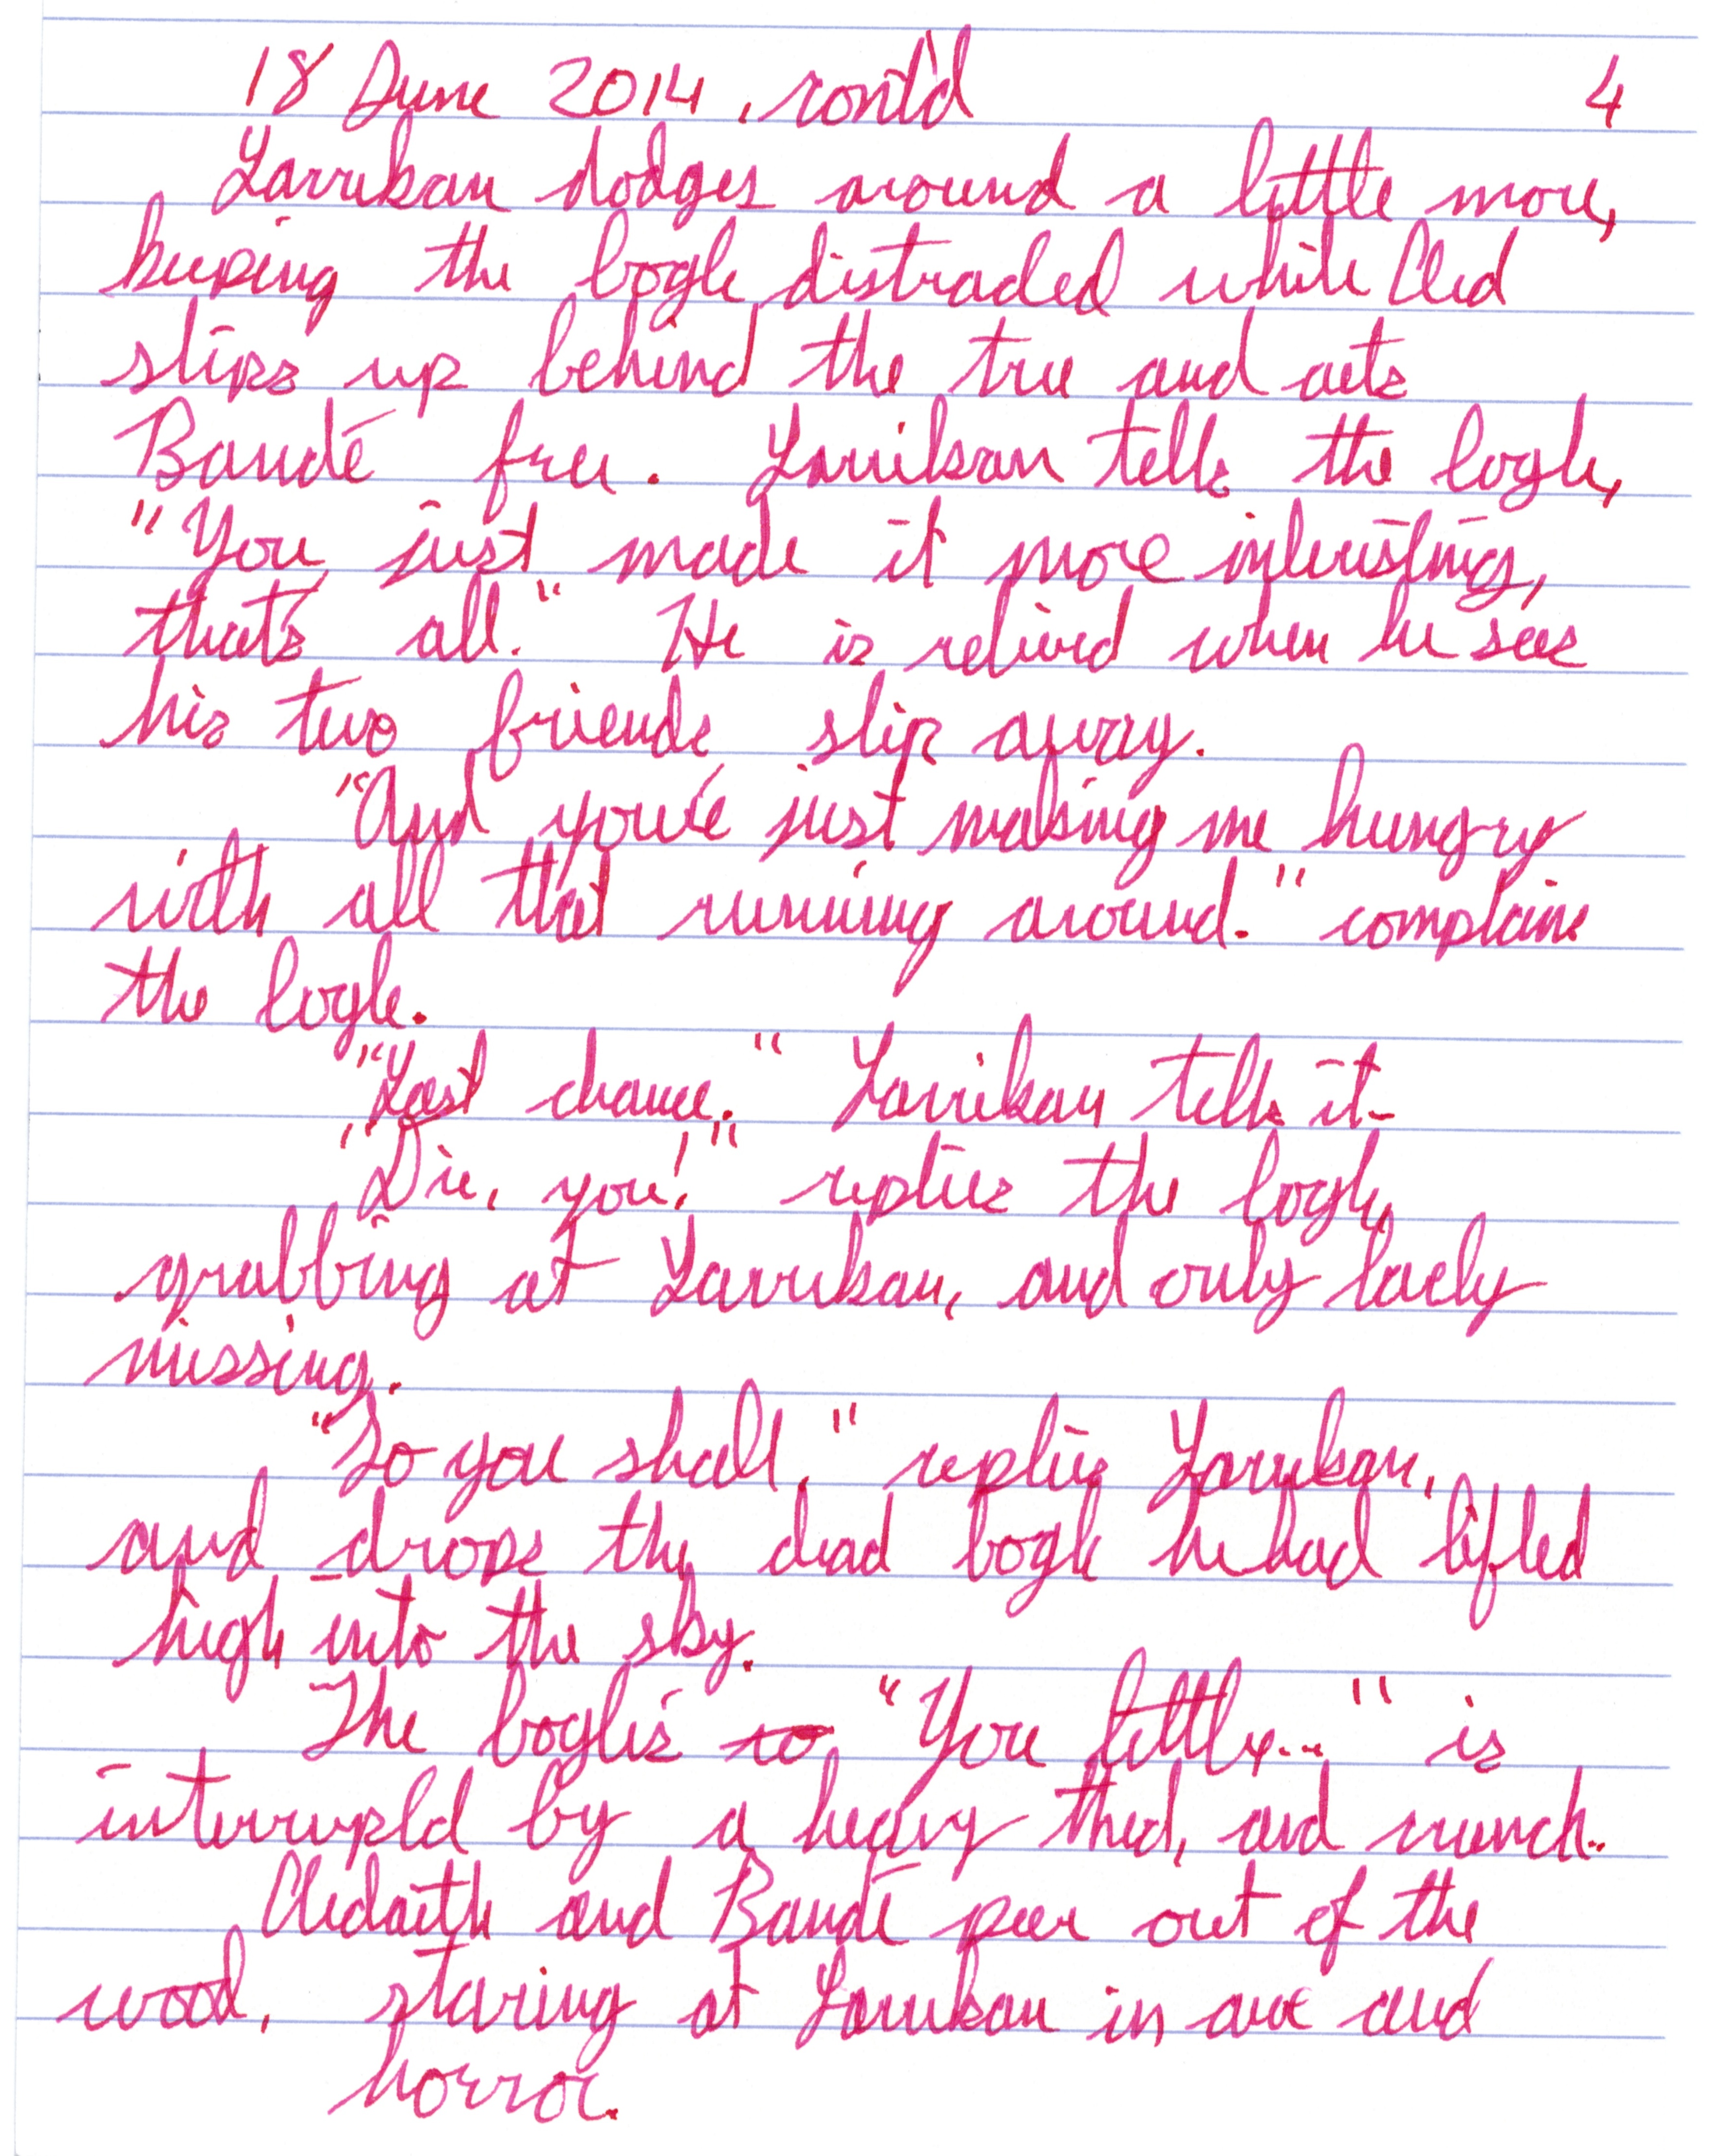 18 June 2014, cont'd 4
Larrikan dodges around a little more,
keeping the bogle distracted while Cled
slips up behind the tree and cuts
Baudé free. Larrikan tells the bogle,
"You just made it more interesting,
that's all." He is relieved when he sees
his two friends slip away.
"And you're just making me hungry
with all that running around." complains
the bogle.
"Last chance." Larrikan tells it.
"Die, you!" replies the bogle,
grabbing at Larrikan, and only barely
missing.
"So you shall," replies Larrikan,
and drops the dead bogle he had lifted
high into the sky.
The bogle's to "You little..." is
interrupted by a heavy thud, and crunch.
Cledaith and Baudé peer out of the
wood, staring at Larrikan in awe and
horror.